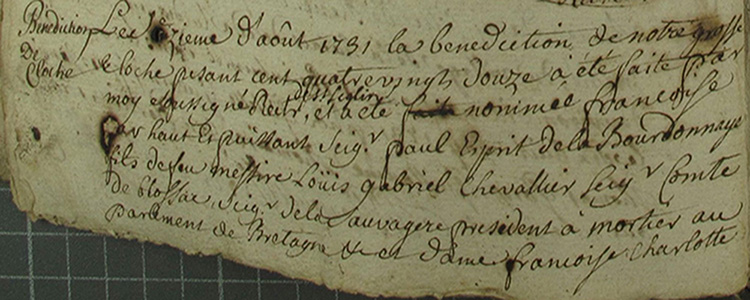 Benediction
De
Cloche
Le seizieme d'août 1731 la benediction de notre grosse
cloche pesant cent quatre vingts douze a été faite par
moy soussigné Rectr. et a été nommée francoise
par haut et puissant Seigr. paul Esprit de la Bourdonnaye
fils de feu messire Loüis gabriel Chevallier Seigr Comte
de blossac Seigr. de la Sauvagere president à mortier au
parlement de Bretagne &c et dame francoise Charlotte